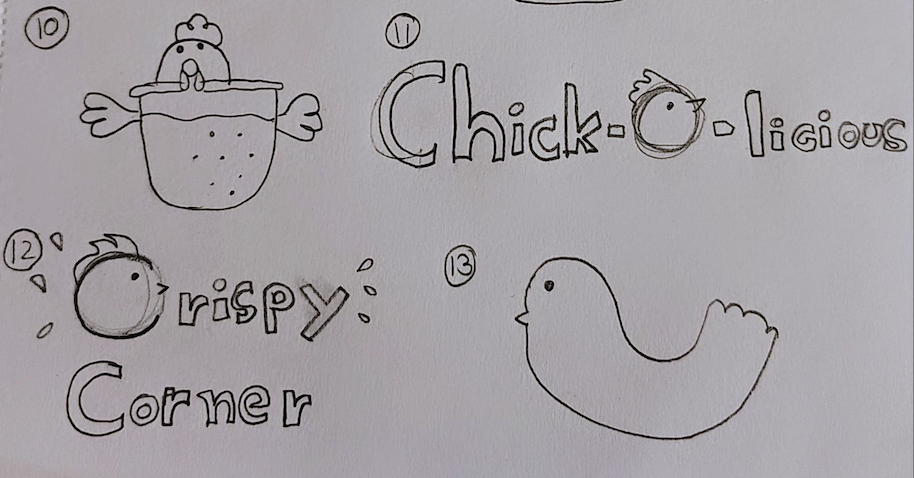 10
11
Chick-O-licious
12
Crispy
Corner
13